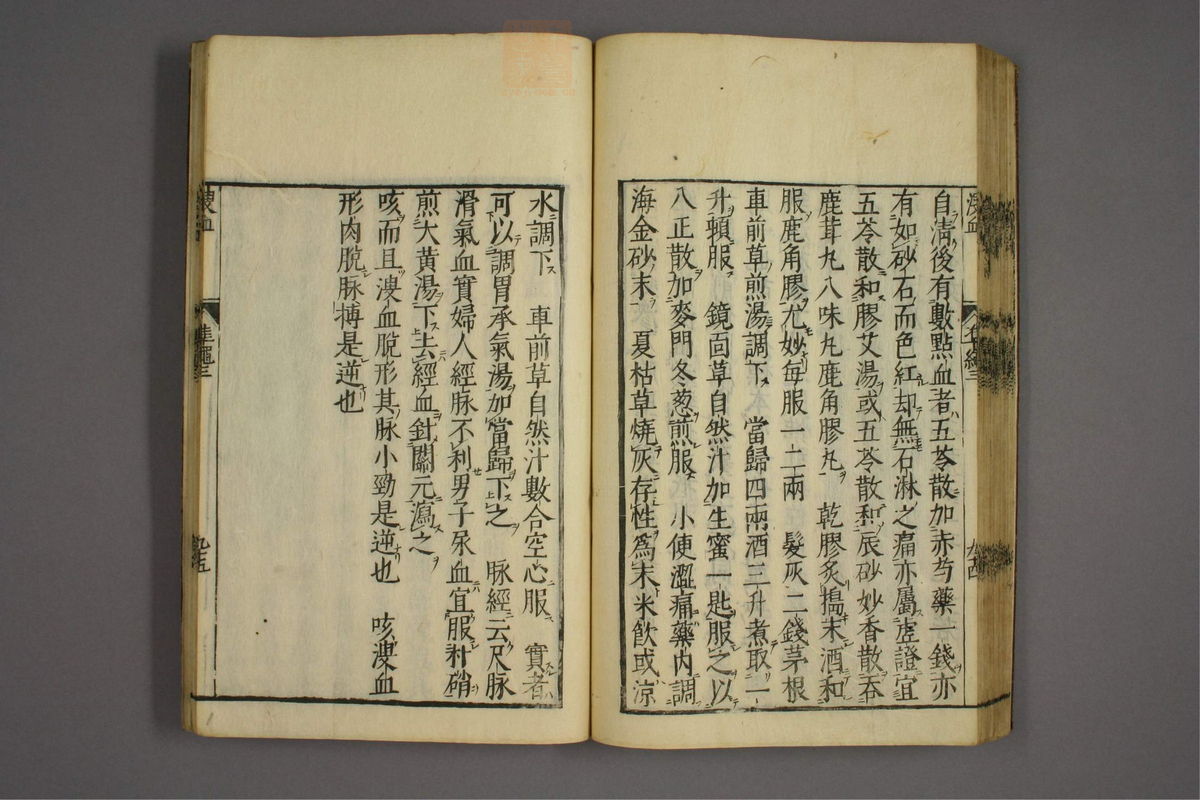 自清後有數點血者五苓散加赤芍藥一錢亦
有如砂石而色紅却無石淋之痛亦屬虚證宜
五苓散和膠艾湯或五苓散和辰砂妙香散吞
鹿茸丸八味丸鹿角膠丸 乾膠炙搗末酒和
服鹿角膠尤妙每服一二兩 髮灰二錢茅根
車前草煎湯調下 當歸四兩酒三升煮取一
升頓服 鏡面草自然汁加生蜜一匙服之以
八正散加麥門冬葱煎服 小便澀痛藥内調
海金砂末 夏枯草燒灰存性爲末米飲或凉
水調下 車前草自然汁數合空心服 實者
可以調胃承氣湯加當歸下之 脉經云尺脉
滑氣血實婦人經脉不利男子尿血宜服朴硝
煎大黄湯下去經血針關元瀉之
咳而且溲血脱形其脉小勁是逆也 咳溲血
形肉脱脉搏是逆也
溲血
九五